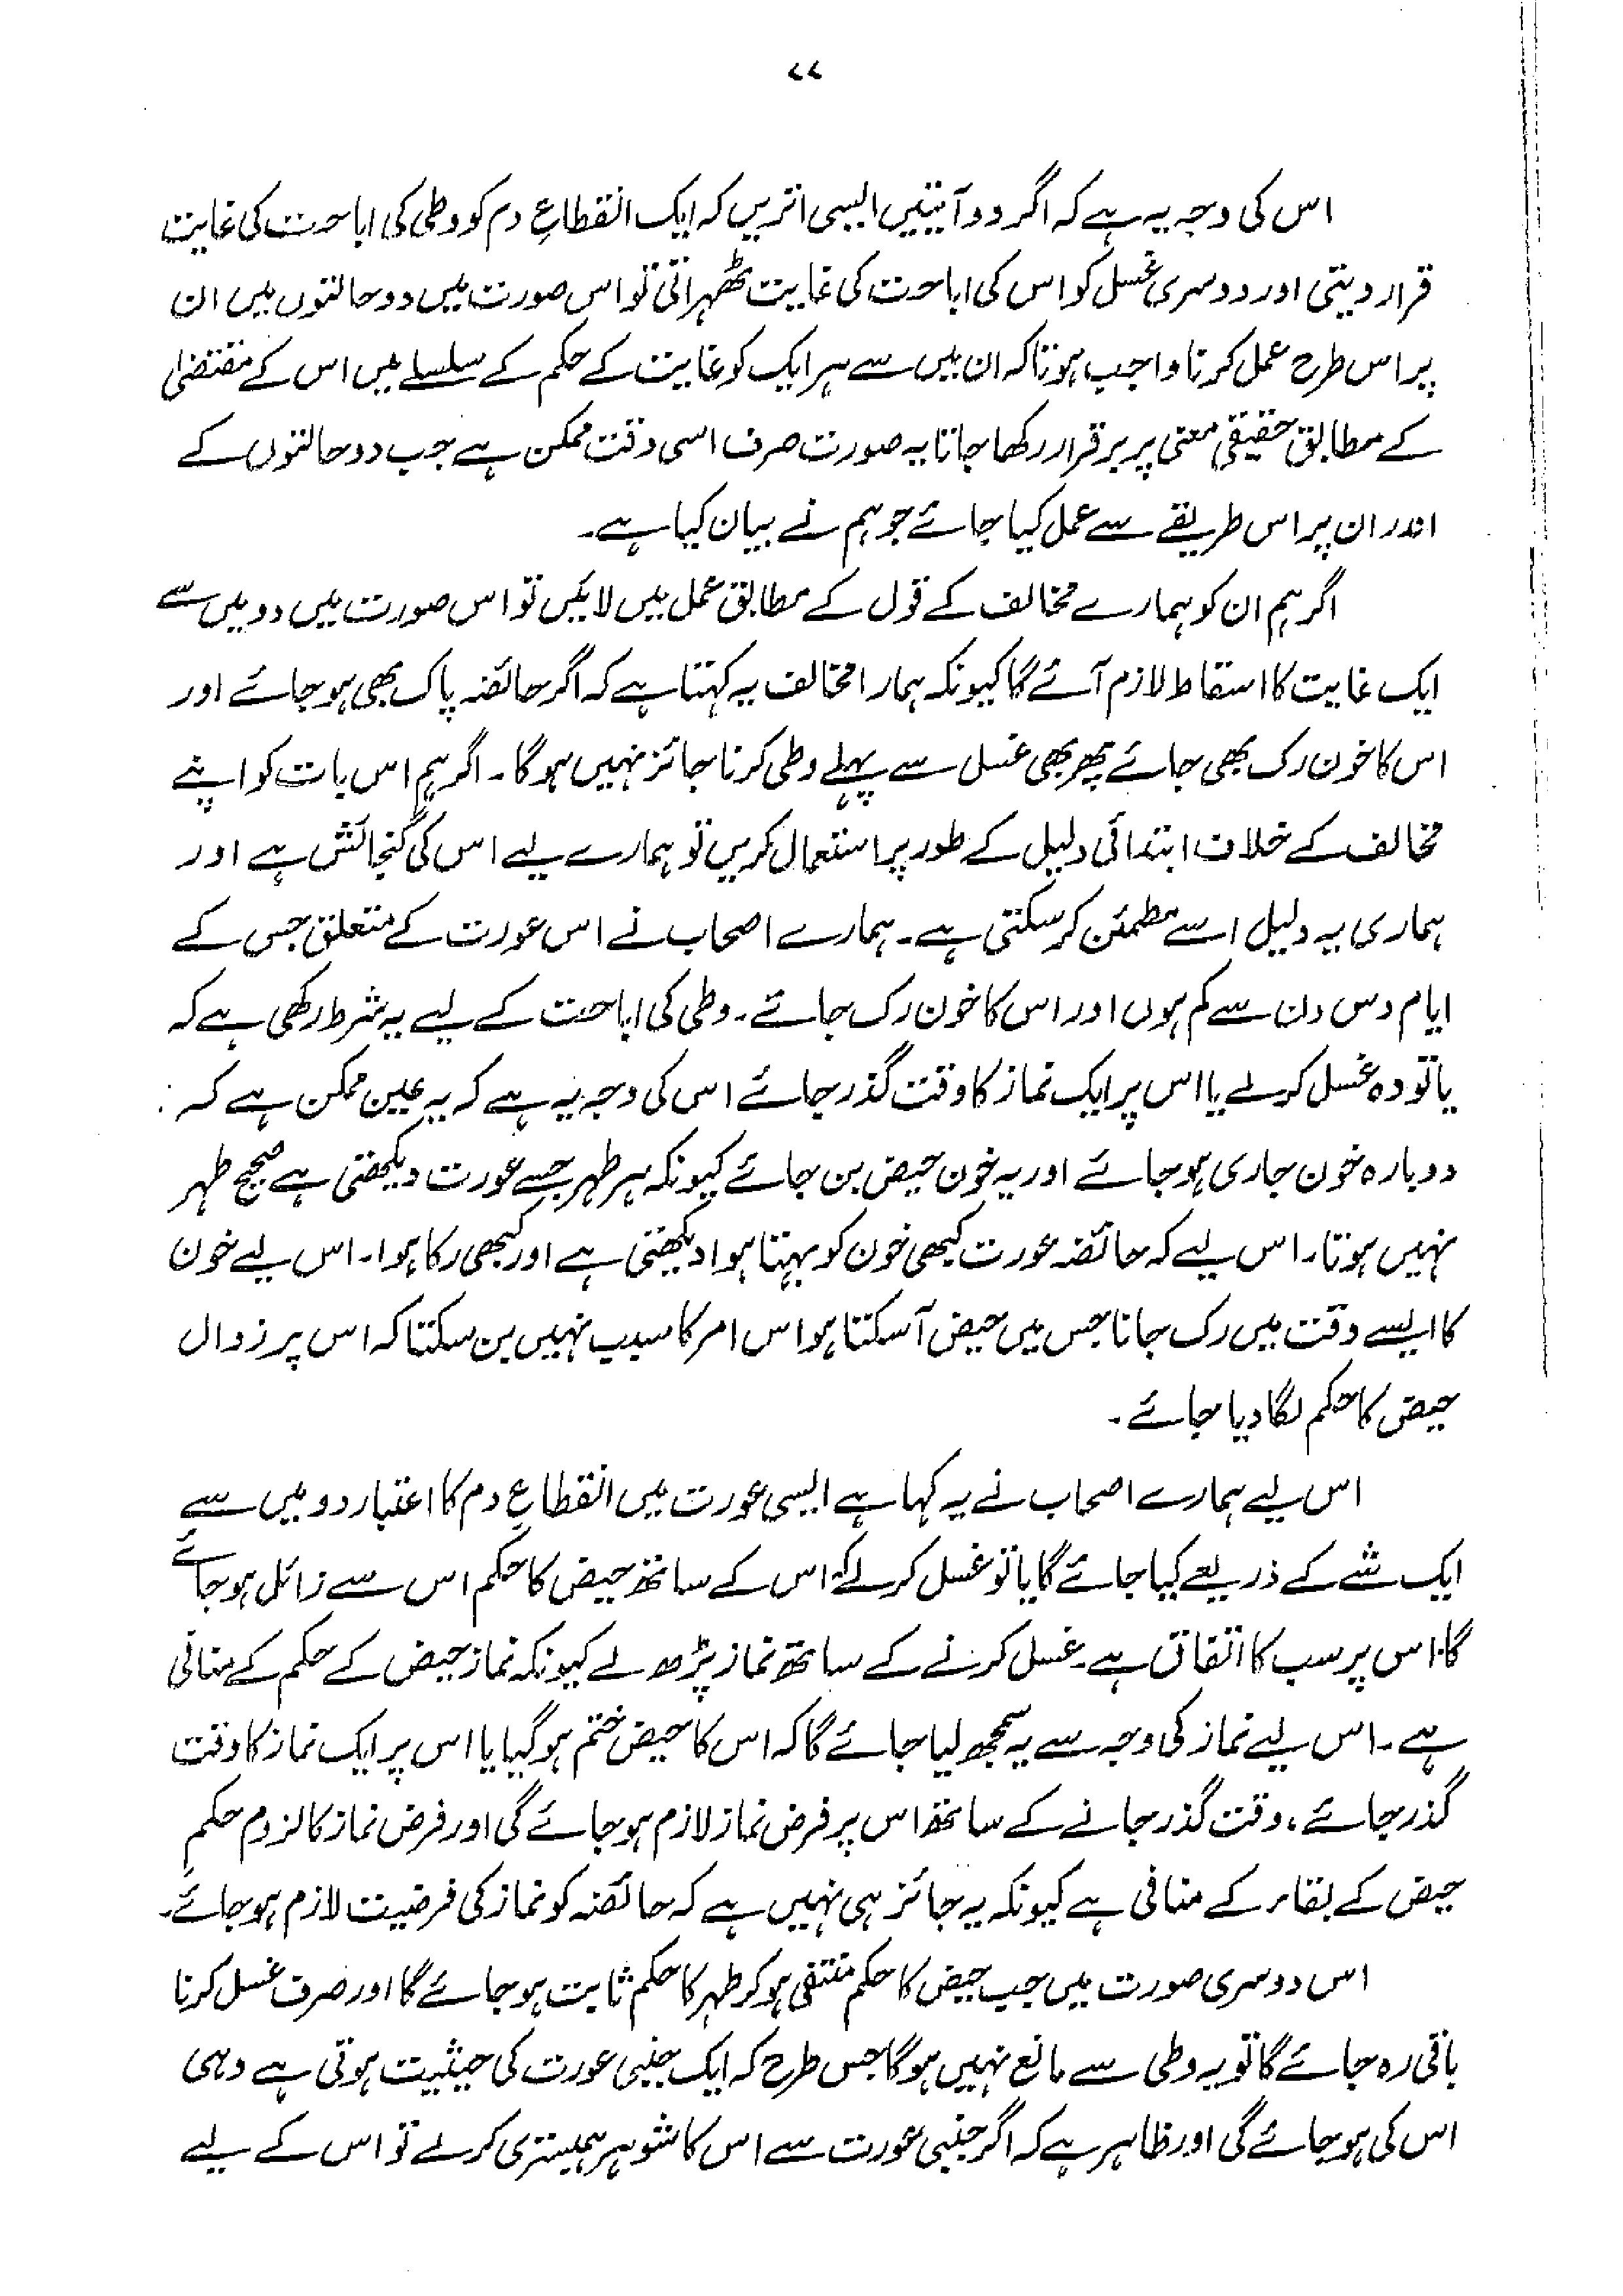 ۷۷
اس کی وجہ یہ ہے کہ اگر دو آیتیں ایسی اتریں کہ ایک انقطاعِ دم کو وطی کی اباحت کی غایت
قرار دیتی اور دوسری غسل کو اس کی اباحت کی غایت ٹھہراتی تو اس صورت میں دو حالتوں میں ان
پر اس طرح عمل کرنا واجب ہوتا کہ ان میں سے ہر ایک کو غایت کے حکم کے سلسلے میں اس کے مقتضیٰ
کے مطابق حقیقی معنی پر برقرار رکھا جاتا یہ صورت صرف اسی وقت ممکن ہے جب دو حالتوں کے
اندر ان پر اس طریقے سے عمل کیا جائے جو ہم نے بیان کیا ہے۔
اگر ہم ان کو ہمارے مخالف کے قول کے مطابق عمل میں لائیں تو اس صورت میں دو میں سے
ایک غایت کا اسقاط لازم آئے گا کیونکہ ہمارا مخالف یہ کہتا ہے کہ اگر حائضہ پاک بھی ہو جائے اور
اس کا خون رک بھی جائے پھر بھی غسل سے پہلے وطی کرنا جائز نہیں ہو گا۔ اگر ہم اس بات کو اپنے
مخالف کے خلاف ابتدائی دلیل کے طور پر استعمال کریں تو ہمارے لیے اس کی گنجائش ہے اور
ہماری یہ دلیل اسے مطمئن کر سکتی ہے۔ ہمارے اصحاب نے اس عورت کے متعلق جس کے
ایام دس دن سے کم ہوں اور اس کا خون رک جائے۔ وطی کی اباحت کے لیے یہ شرط رکھی ہے کہ
یا تو وہ غسل کر لے یا اس پر ایک نماز کا وقت گذر جائے اس کی وجہ یہ ہے کہ یہ عین ممکن ہے کہ
دوبارہ خون جاری ہو جائے اور یہ خون حیض بن جائے کیونکہ ہر طہر جسے عورت دیکھتی ہے صحیح طہر
نہیں ہوتا۔ اس لیے کہ حائضہ عورت کبھی خون کو بہتا ہوا دیکھتی ہے اور کبھی رکا ہوا۔ اس لیے خون
کا ایسے وقت میں رک جانا جس میں حیض آ سکتا ہو اس امر کا سبب نہیں بن سکتا کہ اس پر زوال
حیض کا حکم لگا دیا جائے۔
اس لیے ہمارے اصحاب نے یہ کہا ہے ایسی عورت میں انقطاعِ دم کا اعتبار دو میں سے
ایک شے کے ذریعے کیا جائے گا یا تو غسل کر لے کہ اس کے ساتھ حیض کا حکم اس سے زائل ہو جائے
گا، اس پر سب کا اتفاق ہے۔ غسل کرنے کے ساتھ نماز پڑھ لے کیونکہ نماز حیض کے حکم کے منافی
ہے۔ اس لیے نماز کی وجہ سے یہ سمجھ لیا جائے گا کہ اس کا حیض ختم ہو گیا یا اس پر ایک نماز کا وقت
گذر جائے، وقت گذر جانے کے ساتھ اس پر فرض نماز لازم ہو جائے گی اور فرض نماز کا لزوم حکمِ
حیض کے بقاء کے منافی ہے کیونکہ یہ جائز ہی نہیں ہے کہ حائضہ کو نماز کی فرضیت لازم ہو جائے۔
اس دوسری صورت میں جب حیض کا حکم منتفی ہو کر طہر کا حکم ثابت ہو جائے گا اور صرف غسل کرنا
باقی رہ جائے گا تو یہ وطی سے مانع نہیں ہو گا جس طرح کہ ایک جنبی عورت کی حیثیت ہوتی ہے وہی
اس کی ہو جائے گی اور ظاہر ہے کہ اگر جنبی عورت سے اس کا شوہر ہمبستری کر لے تو اس کے لیے